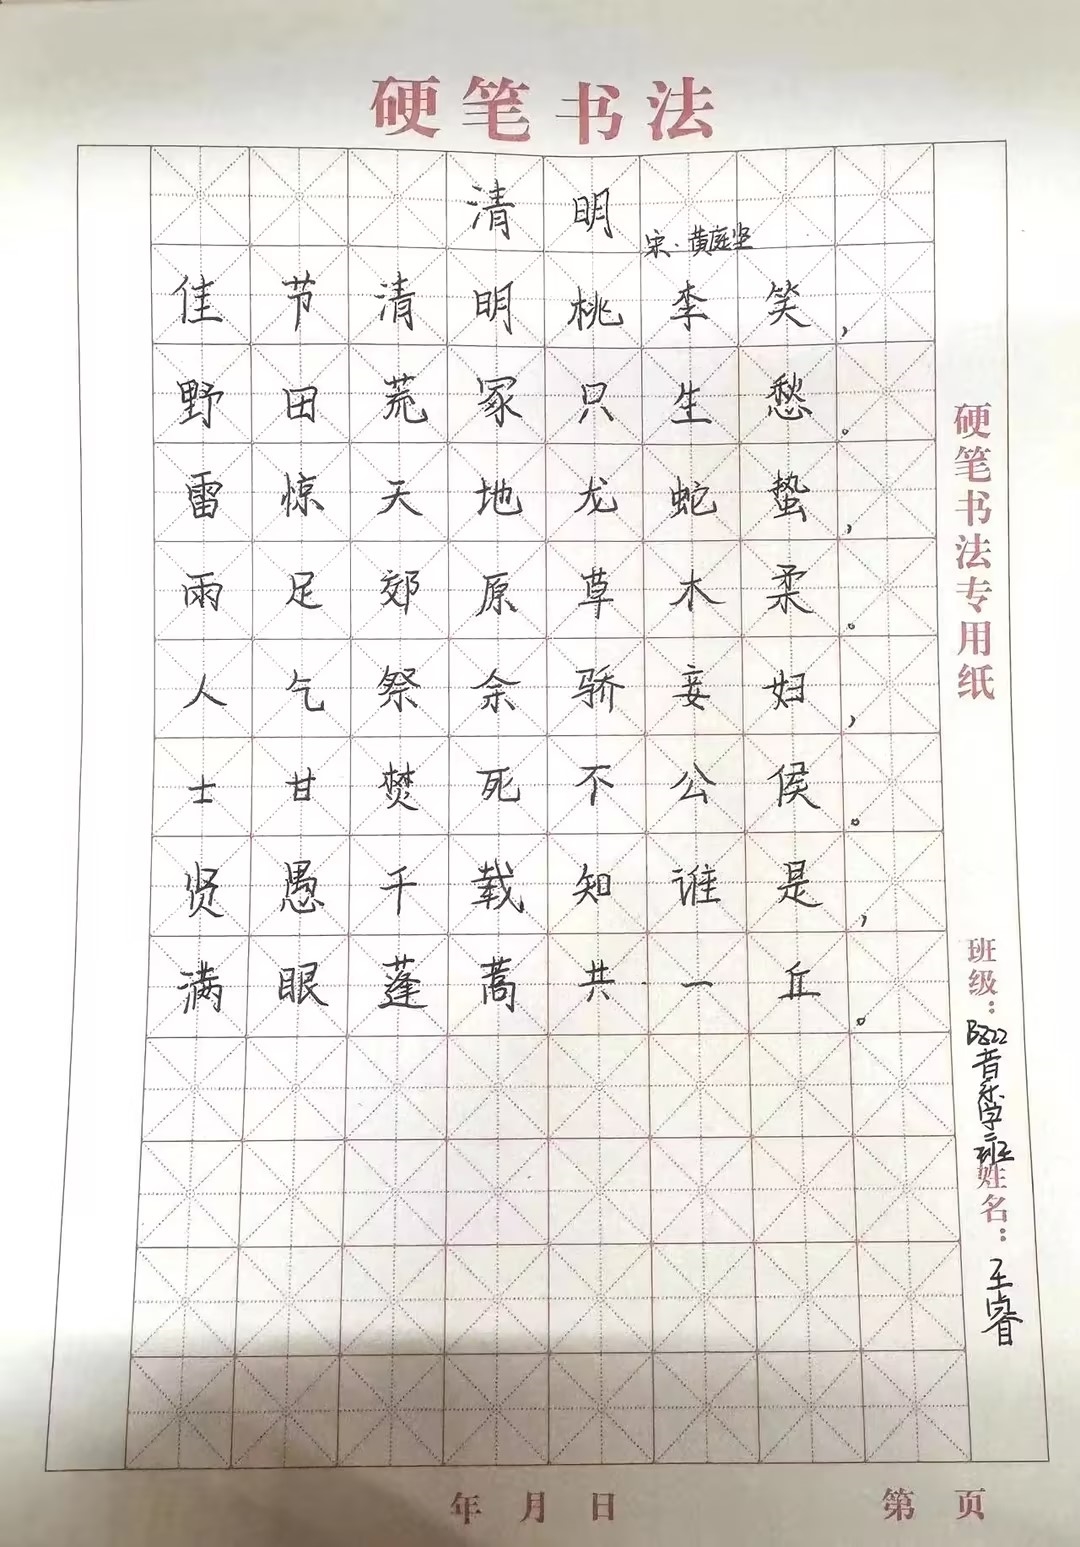 硬笔书法
清明
宋·黄庭坚
佳节清明桃李笑，
野田荒冢只生愁。
雷惊天地龙蛇蛰，
雨足郊原草木柔。
人乞祭余骄妾妇，
士甘焚死不公侯。
贤愚千载知谁是，
满眼蓬蒿共一丘。
硬笔书法专用纸
班级：BZ22音乐学二班
姓名：王睿
年 月 日
第 页